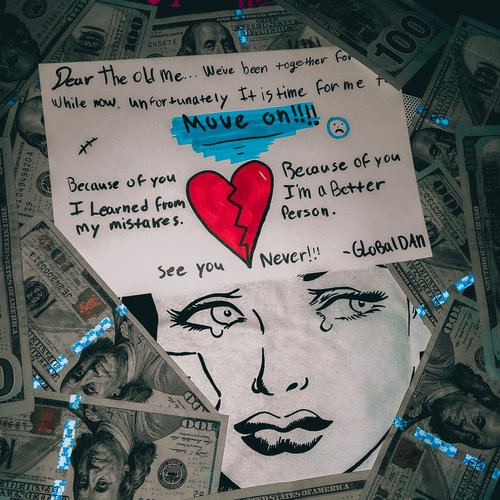 Dear The old me... We've been together for
While now.. unfortunately It is time for me
Move on!!!!
Because of you
I Learned from
my mistakes.
Because of you
I'm a Better
Person.
See you Never!!!
-GLOBALDAN
100
100
100
100